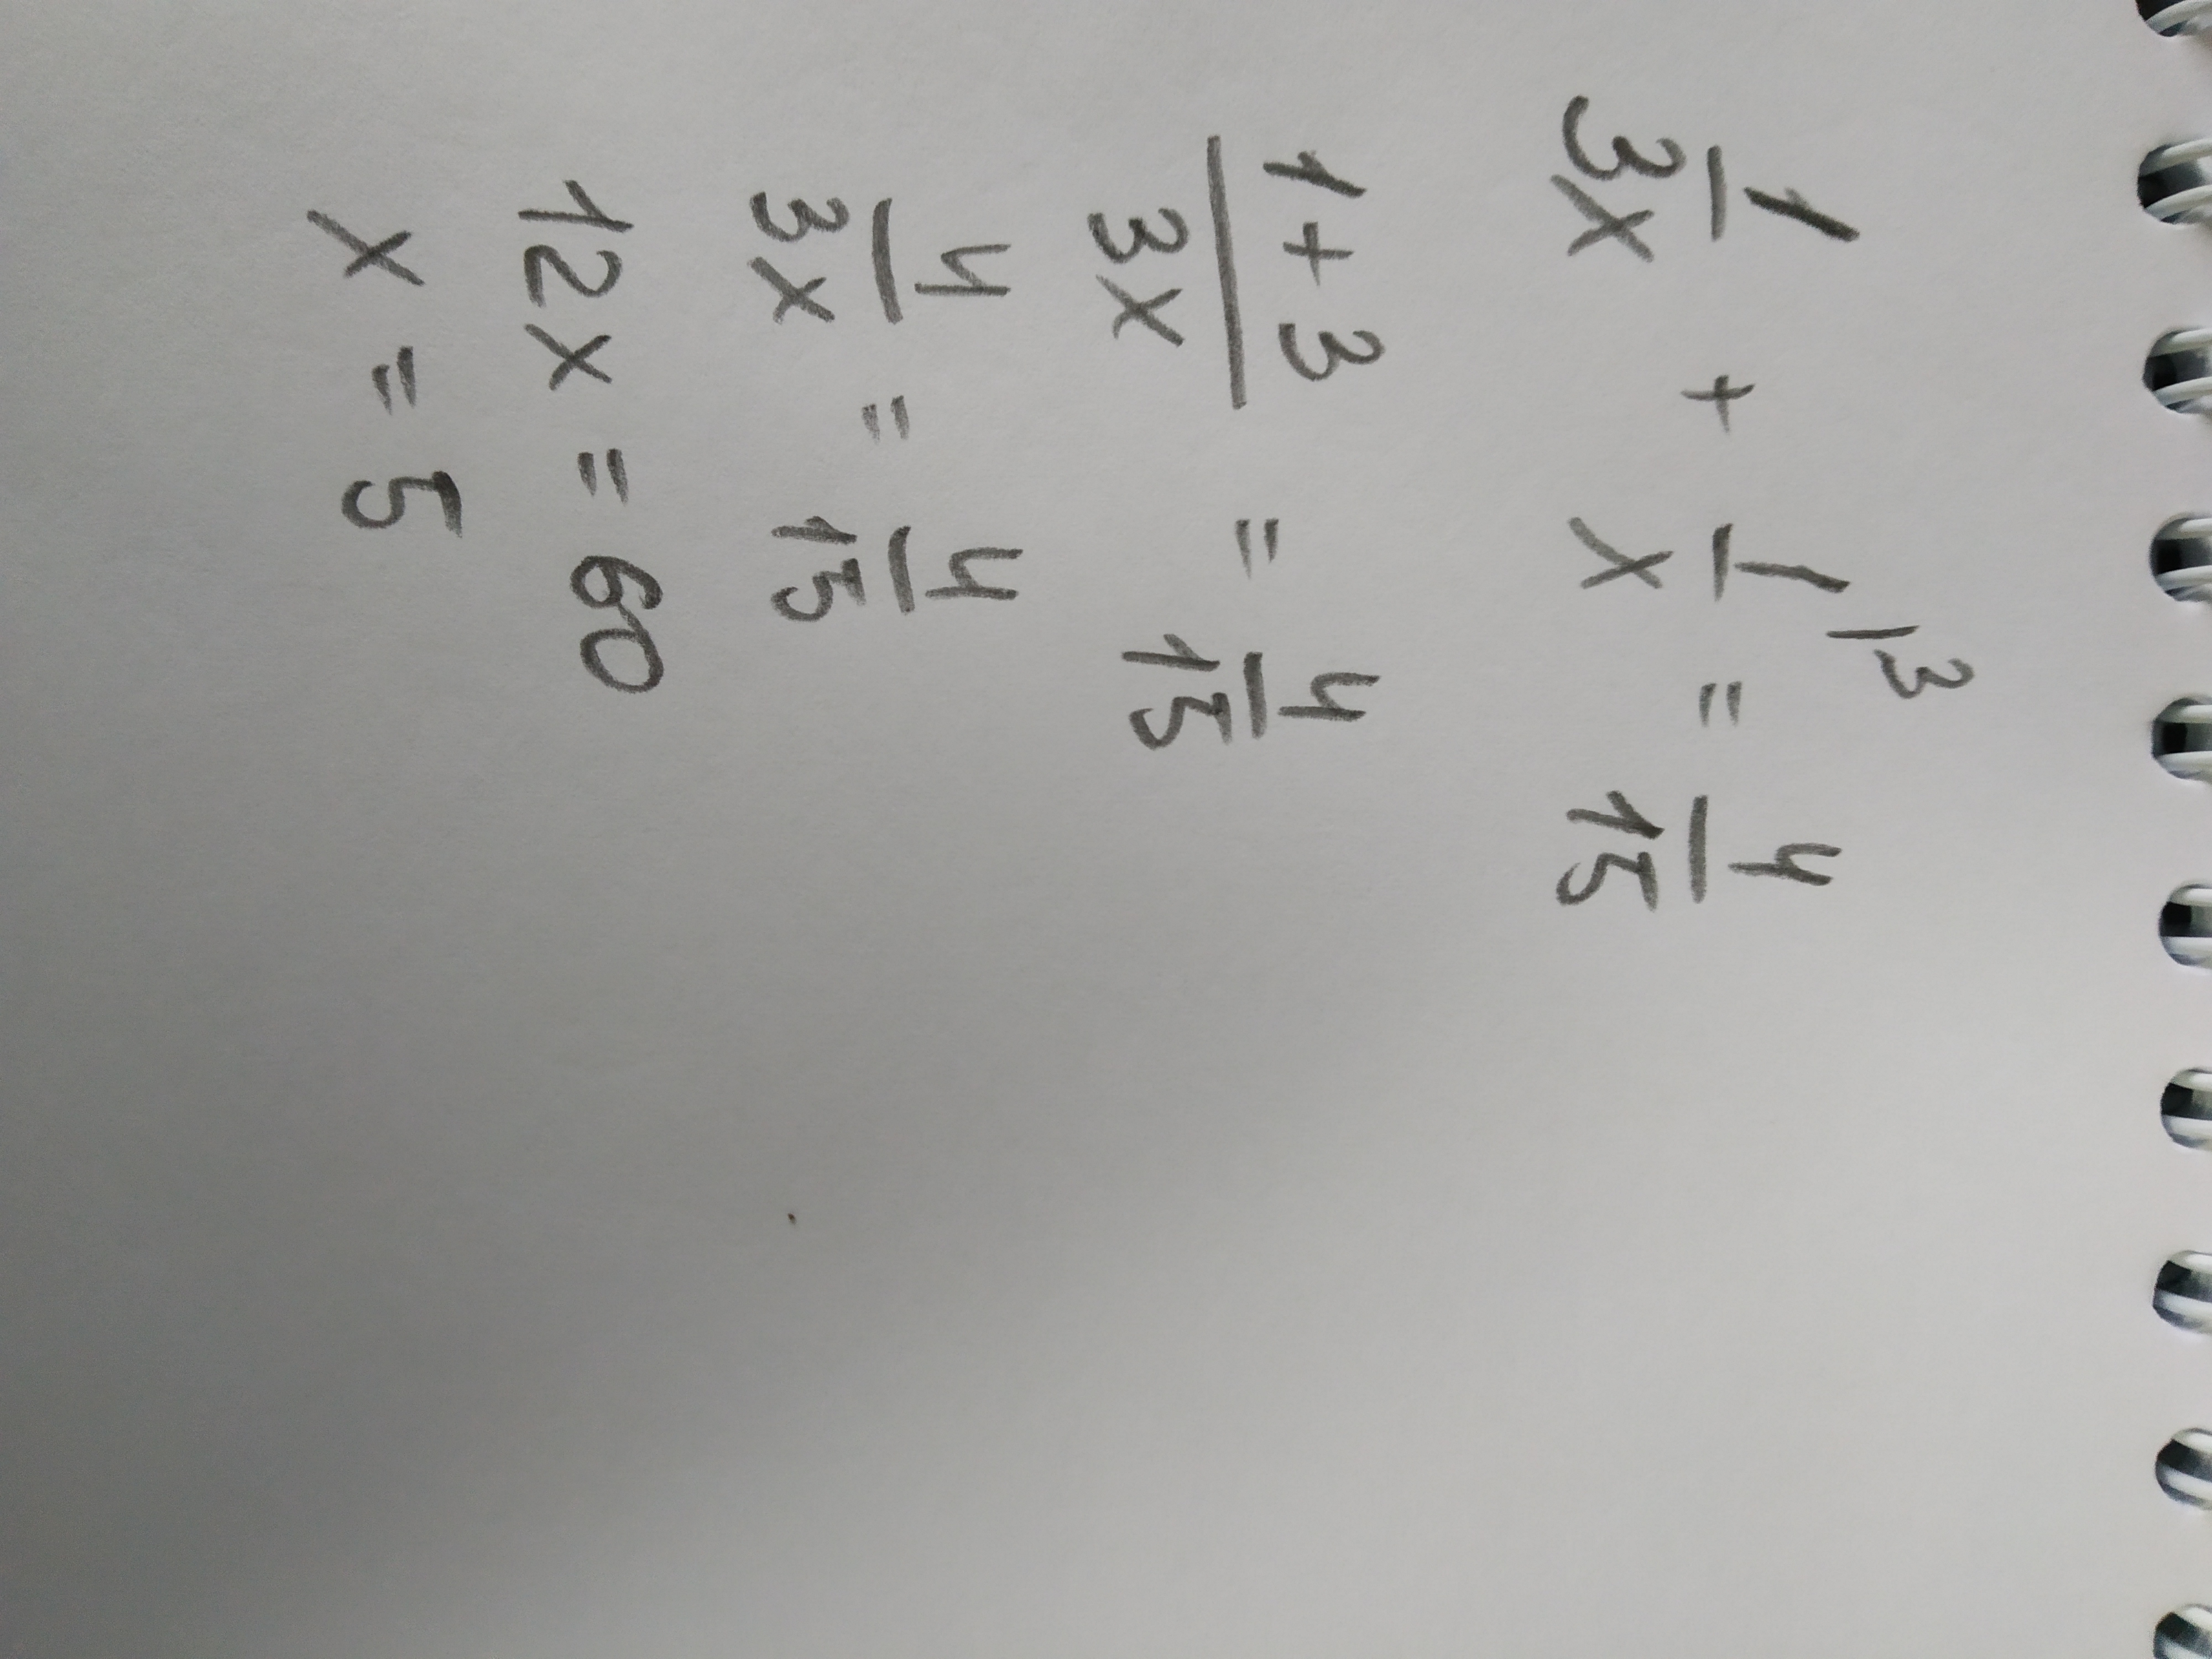 1/3x + 1/x |3 = 4/15
1+3/3x = 4/15
4/3x = 4/15
12x = 60
x = 5